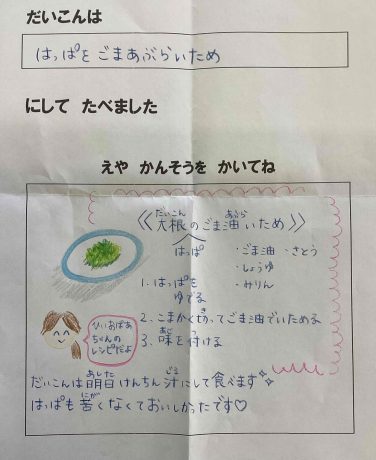 だいこんは
はっぱを ごまあぶらいため
にして たべました
えや かんそうを かいてね
だいこん あぶら
《大根のごま油いため》
はっぱ
・ごま油 ・さとう
・しょうゆ
・みりん
1. はっぱを
ゆでる
2. こまかくきってごま油でいためる
あじ つ
3. 味を付ける
ひいおばあ
ちゃんの
レシピだよ
あした じる
だいこんは明日けんちん汁にして食べます
にが
はっぱも苦くなくておいしかったです♡